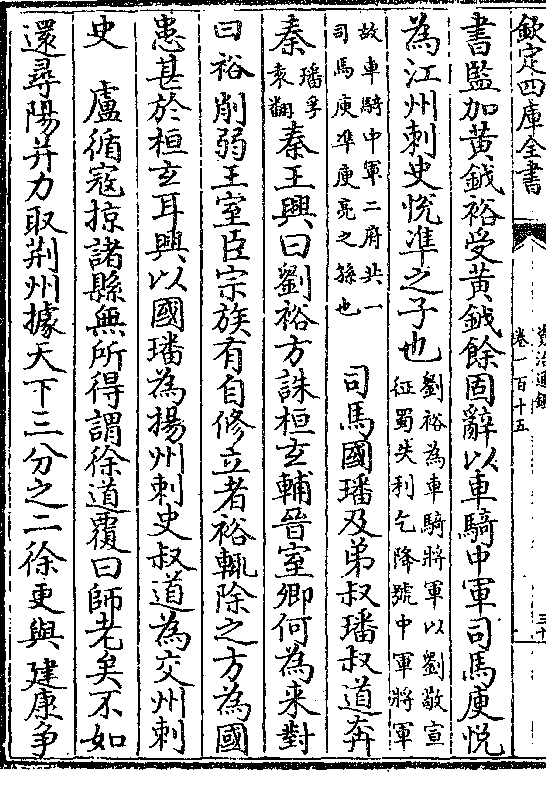 欽定四庫全書
資治通鑑
卷一百十五
三十
書監加黄鉞裕受黄鉞餘固辭以車騎中軍司馬庾悦
為江州刺史悦凖之子也劉裕為車騎將軍以劉敬宣
征蜀失利乞降號中軍將軍
故車騎中軍二府共一
司馬庾凖庾亮之孫也司馬國璠及弟叔璠叔道奔
秦璠孚
袁翻秦王興曰劉裕方誅桓玄輔晉室卿何為来對
曰裕削弱王室臣宗族有自修立者裕輒除之方為國
患甚於桓玄耳興以國璠為揚州刺史叔道為交州刺
史 盧循寇掠諸縣無所得謂徐道覆曰師老矣不如
還尋陽并力取荆州據天下三分之二徐更與建康争